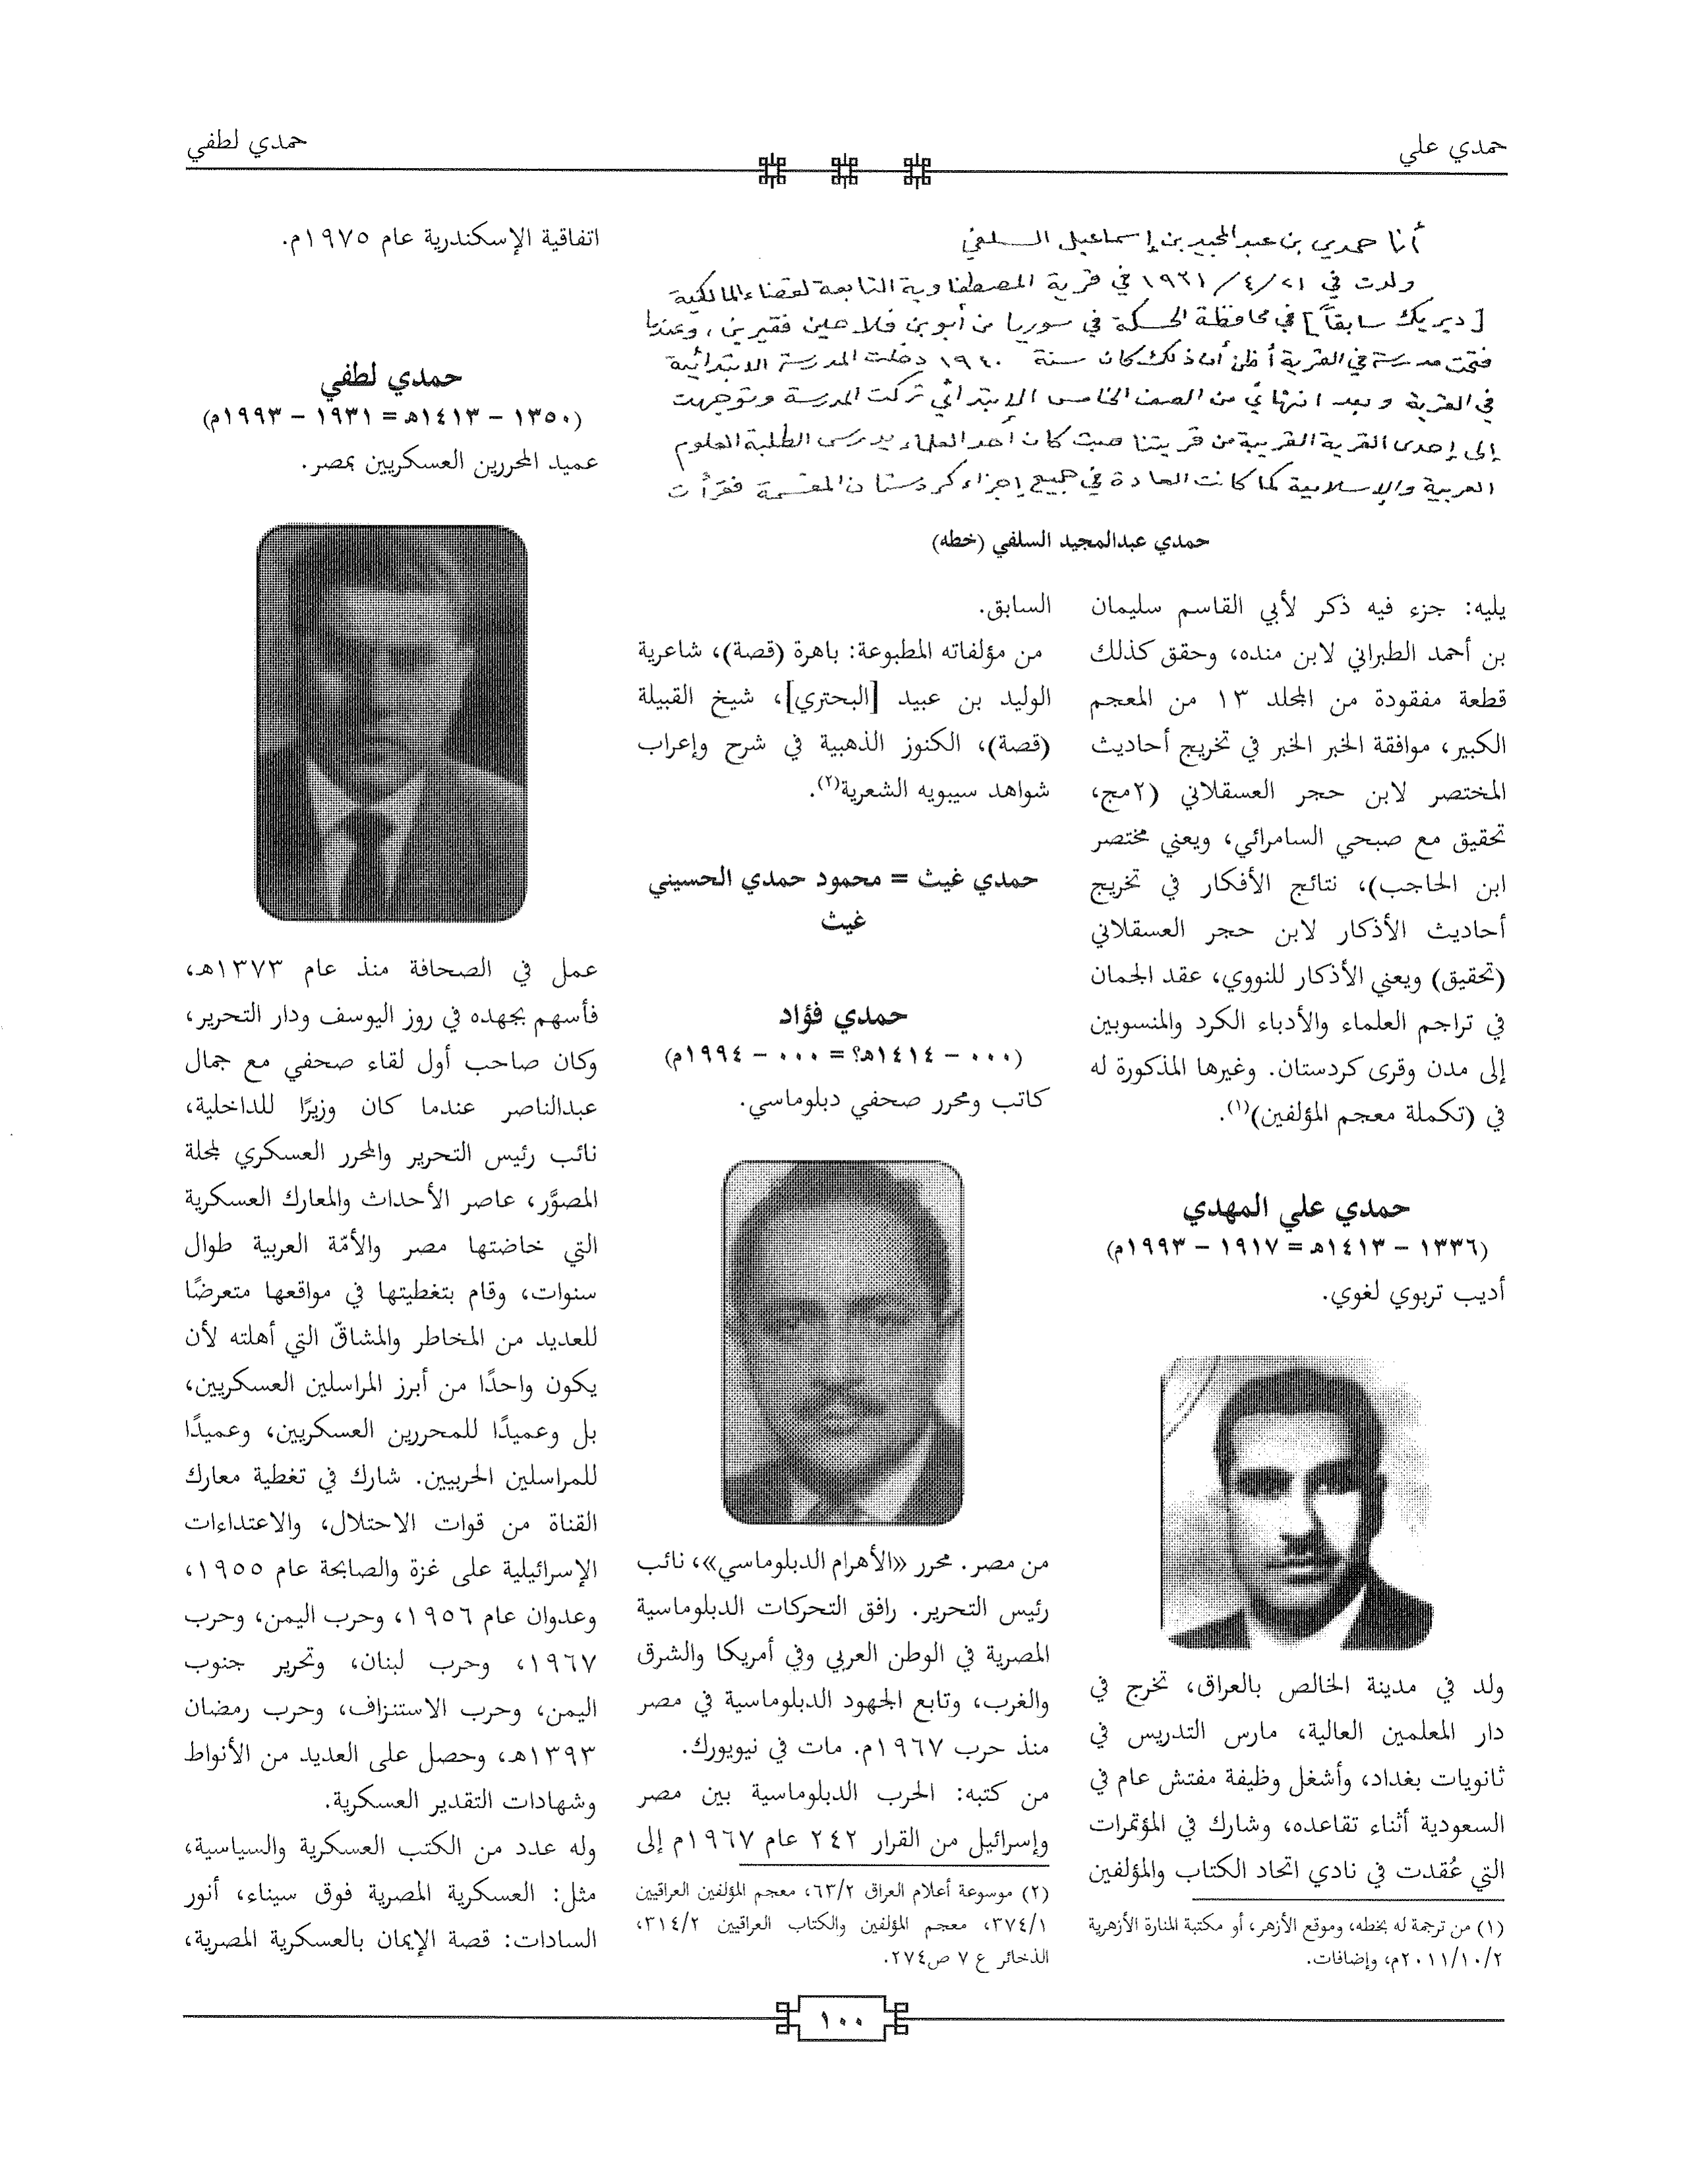 حمدي علي
حمدي لطفي
أنا حمدي بن عبدالمجيد بن إسماعيل السلفي
ولدت في ٢١/٤/١٩٣١ في قرية المصطفاوية التابعة لقضاء المالكية
[ديريك سابقاً] في محافظة الحسكة في سوريا من أبوين فلاحين فقيرين، وعندما
فتحت مدرسة في القرية أظن أن ذلك كان سنة ١٩٤٠ دخلت المدرسة الابتدائية
في القرية وبعد انتهائي من الصف الخامس الابتدائي تركت المدرسة وتوجهت
إلى إحدى القرية القريبة من قريتنا حيث كان أحد العلماء يدرس الطلبة العلوم
العربية والإسلامية كما كانت العادة في جميع إجزاء كردستان المقسمة فقرأت
حمدي عبدالمجيد السلفي (خطه)
يليه: جزء فيه ذكر لأبي القاسم سليمان
بن أحمد الطبراني لابن منده، وحقق كذلك
قطعة مفقودة من المجلد ١٣ من المعجم
الكبير، موافقة الخبر الخبر في تخريج أحاديث
المختصر لابن حجر العسقلاني (٢مج،
تحقيق مع صبحي السامرائي، ويعني مختصر
ابن الحاجب)، نتائج الأفكار في تخريج
أحاديث الأذكار لابن حجر العسقلاني
(تحقيق) ويعني الأذكار للنووي، عقد الجمان
في تراجم العلماء والأدباء الكرد والمنسوبين
إلى مدن وقرى كردستان. وغيرها المذكورة له
في (تكملة معجم المؤلفين)(١).
حمدي علي المهدي
(١٣٣٦ - ١٤١٣هـ = ١٩١٧ - ١٩٩٣م)
أديب تربوي لغوي.
ولد في مدينة الخالص بالعراق، تخرج في
دار المعلمين العالية، مارس التدريس في
ثانويات بغداد، وأشغل وظيفة مفتش عام في
السعودية أثناء تقاعده، وشارك في المؤتمرات
التي عُقدت في نادي اتحاد الكتاب والمؤلفين
(١) من ترجمة له بخطه، وموقع الأزهر، أو مكتبة المنارة الأزهرية
٢٠١١/١٠/٢م، وإضافات.
السابق.
من مؤلفاته المطبوعة: باهرة (قصة)، شاعرية
الوليد بن عبيد [البحتري]، شيخ القبيلة
(قصة)، الكنوز الذهبية في شرح وإعراب
شواهد سيبويه الشعرية(٢).
حمدي غيث = محمود حمدي الحسيني
غيث
حمدي فؤاد
(٠٠٠ - ١٤١٤هـ؟ = ٠٠٠ - ١٩٩٤م)
كاتب ومحرر صحفي دبلوماسي.
من مصر. محرر «الأهرام الدبلوماسي»، نائب
رئيس التحرير. رافق التحركات الدبلوماسية
المصرية في الوطن العربي وفي أمريكا والشرق
والغرب، وتابع الجهود الدبلوماسية في مصر
منذ حرب ١٩٦٧م. مات في نيويورك.
من كتبه: الحرب الدبلوماسية بين مصر
وإسرائيل من القرار ٢٤٢ عام ١٩٦٧م إلى
(٢) موسوعة أعلام العراق ٦٣/٢، معجم المؤلفين العراقيين
٣٧٤/١، معجم المؤلفين والكتاب العراقيين ٣١٤/٢،
الذخائر ع ٧ ص٢٧٤.
اتفاقية الإسكندرية عام ١٩٧٥م.
حمدي لطفي
(١٣٥٠ - ١٤١٣هـ = ١٩٣١ - ١٩٩٣م)
عميد المحررين العسكريين بمصر.
عمل في الصحافة منذ عام ١٣٧٣هـ،
فأسهم بجهده في روز اليوسف ودار التحرير،
وكان صاحب أول لقاء صحفي مع جمال
عبدالناصر عندما كان وزيرًا للداخلية،
نائب رئيس التحرير والمحرر العسكري لمجلة
المصوَّر، عاصر الأحداث والمعارك العسكرية
التي خاضتها مصر والأمّة العربية طوال
سنوات، وقام بتغطيتها في مواقعها متعرضًا
للعديد من المخاطر والمشاقّ التي أهلته لأن
يكون واحدًا من أبرز المراسلين العسكريين،
بل وعميدًا للمحررين العسكريين، وعميدًا
للمراسلين الحربيين. شارك في تغطية معارك
القناة من قوات الاحتلال، والاعتداءات
الإسرائيلية على غزة والصابحة عام ١٩٥٥،
وعدوان عام ١٩٥٦، وحرب اليمن، وحرب
١٩٦٧، وحرب لبنان، وتحرير جنوب
اليمن، وحرب الاستنزاف، وحرب رمضان
١٣٩٣هـ، وحصل على العديد من الأنواط
وشهادات التقدير العسكرية.
وله عدد من الكتب العسكرية والسياسية،
مثل: العسكرية المصرية فوق سيناء، أنور
السادات: قصة الإيمان بالعسكرية المصرية،
١٠٠